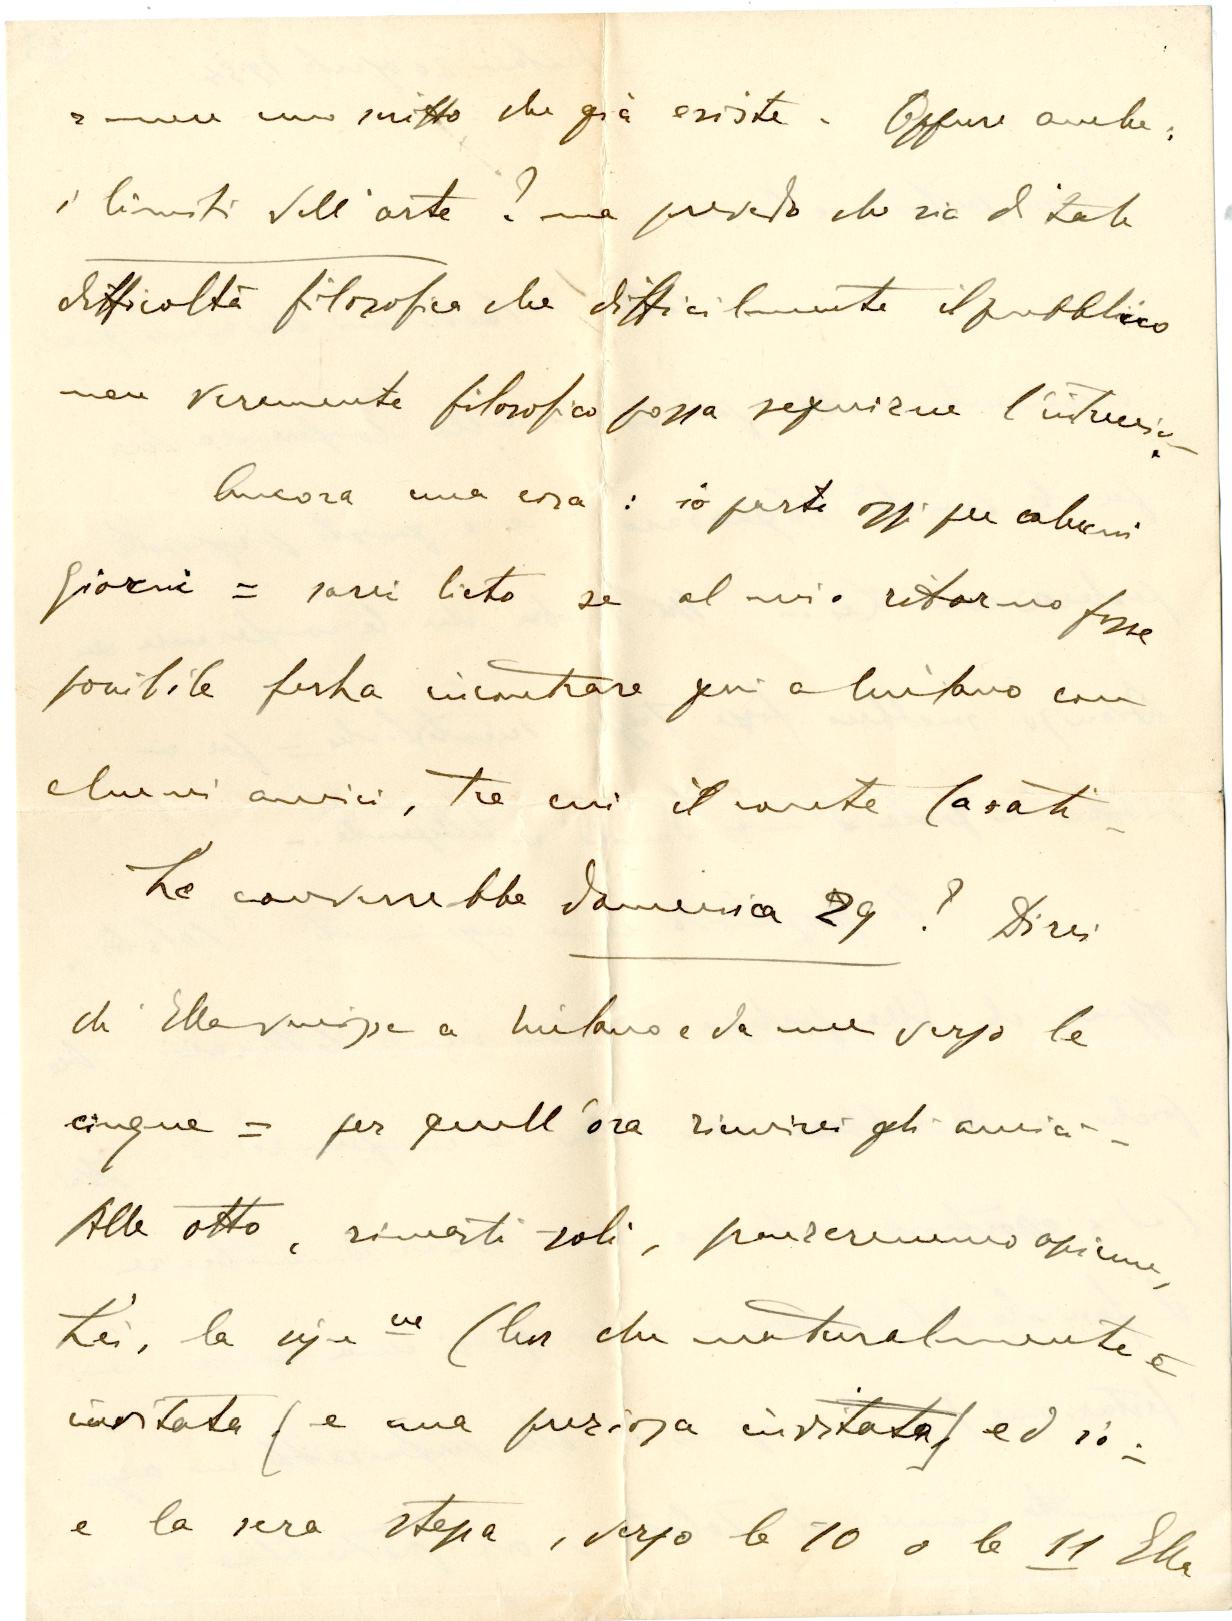 uno scritto che già esiste. Oppure anche:
i limiti dell'arte? ma prevedo che sia di tale
difficoltà filosofica che difficilmente il pubblico
non veramente filosofico possa seguirne
Ancora una cosa: io parto oggi per alcuni
giorni = sarei lieto se al mio ritorno fosse
possibile farla incontrare qui a Milano con
alcuni amici, tra cui il conte Casati -
Le converrebbe domenica 29? Direi
che Ella venisse a Milano e da me verso le
cinque = per quell'ora riunirei gli amici -
Alle otto, rimasti soli, pranzeremmo assieme,
Lei, la sig.na (che naturalmente è
invitata (e una preziosa invitata) ed io:
e la sera stessa, verso le 10 o le 11 Ella